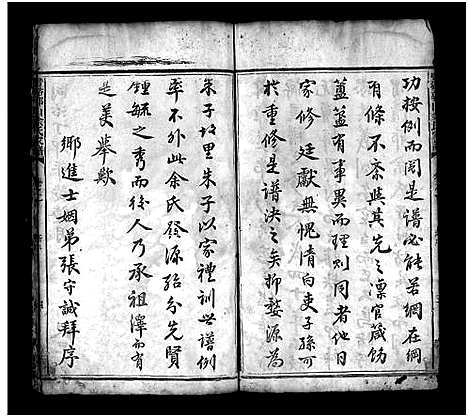 功按例而閱是譜必能若網在綱
有條不紊與其先之凜官箴飭
簠簋有事異而理則同者他日
家修廷獻無愧清白吏子孫可
於重修是譜決之矣抑婺源為
朱子故里朱子以家禮訓世譜例
率不外此余氏發源殆分先賢
鍾毓之秀而後人乃承祖澤而有
是美舉歟
鄉進士姻弟張守誠拜序